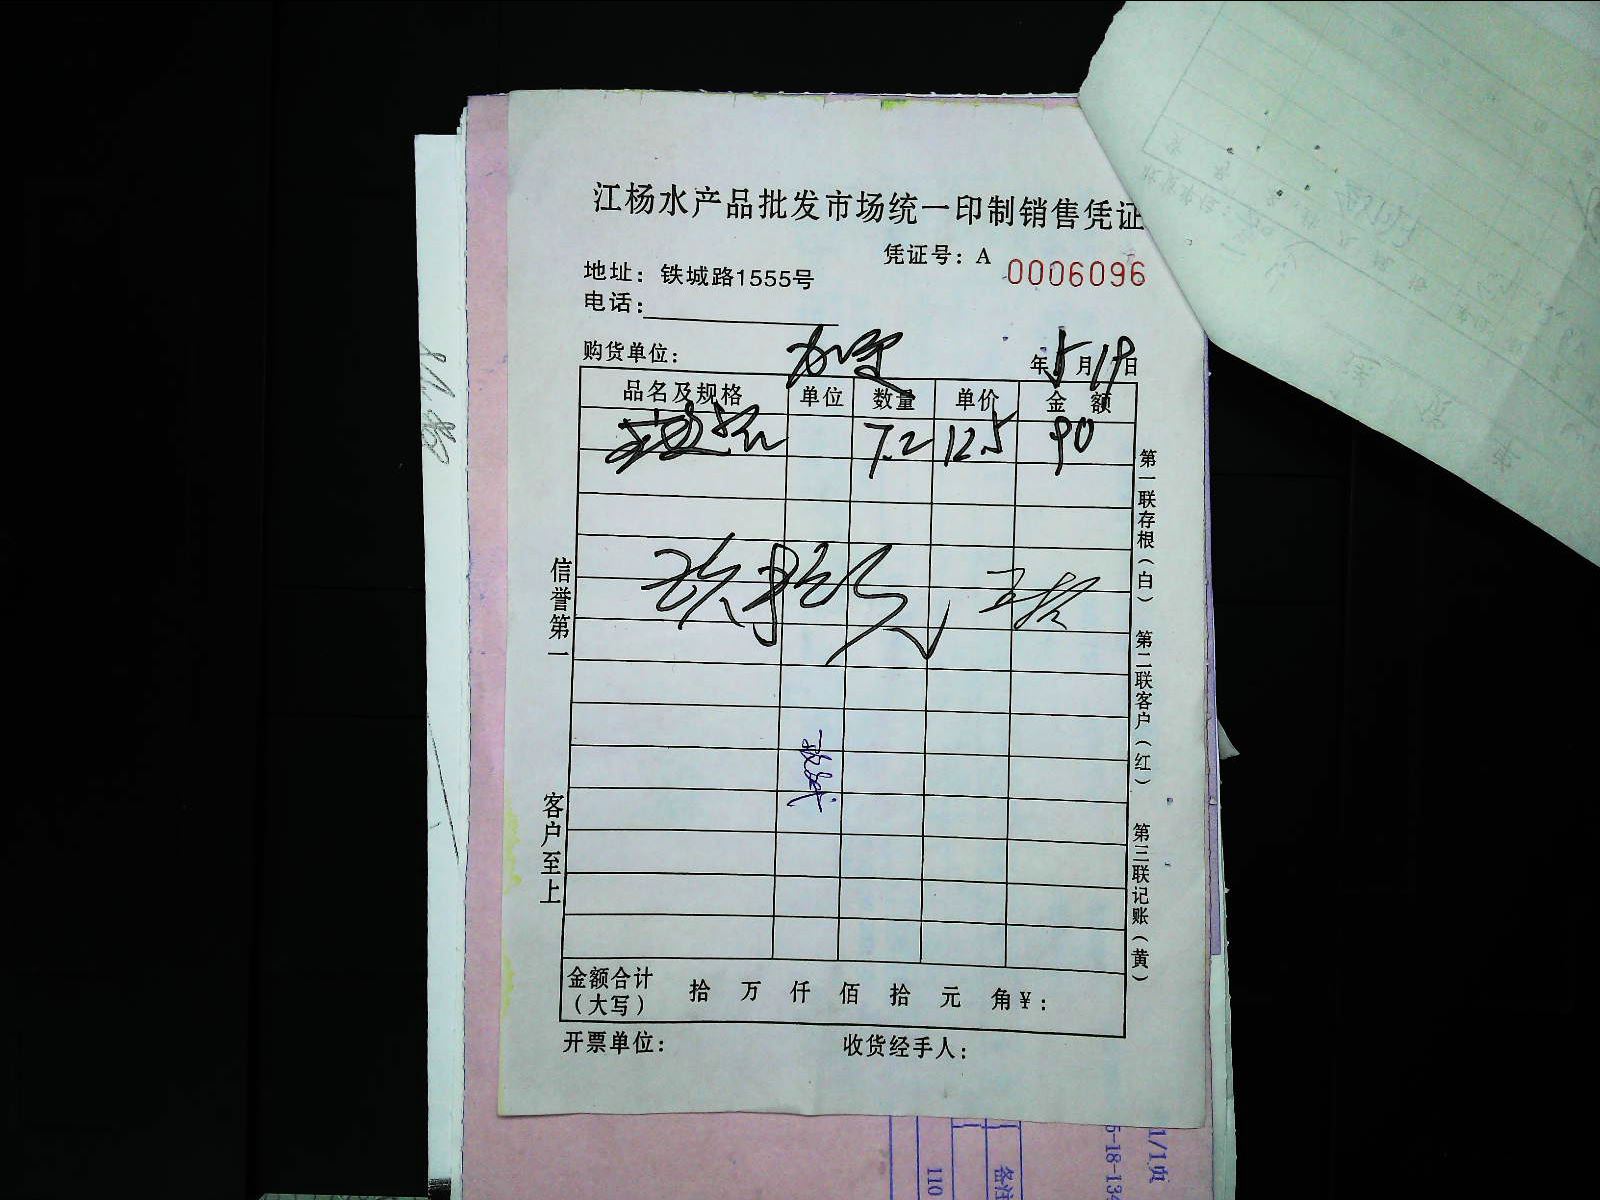 江杨水产品批发市场统一印制销售凭证
凭证号：A 0006096
地址：铁城路1555号
电话：
购货单位： 年5月19日
品名及规格 单位 数量 单价 金额
7.2 12.5 90
信誉第一
客户至上
第一联存根（白）
第二联客户（红）
第三联记账（黄）
金额合计（大写） 拾 万 仟 佰 拾 元 角￥：
开票单位： 收货经手人：
1/1页
5-18-134
备注
110